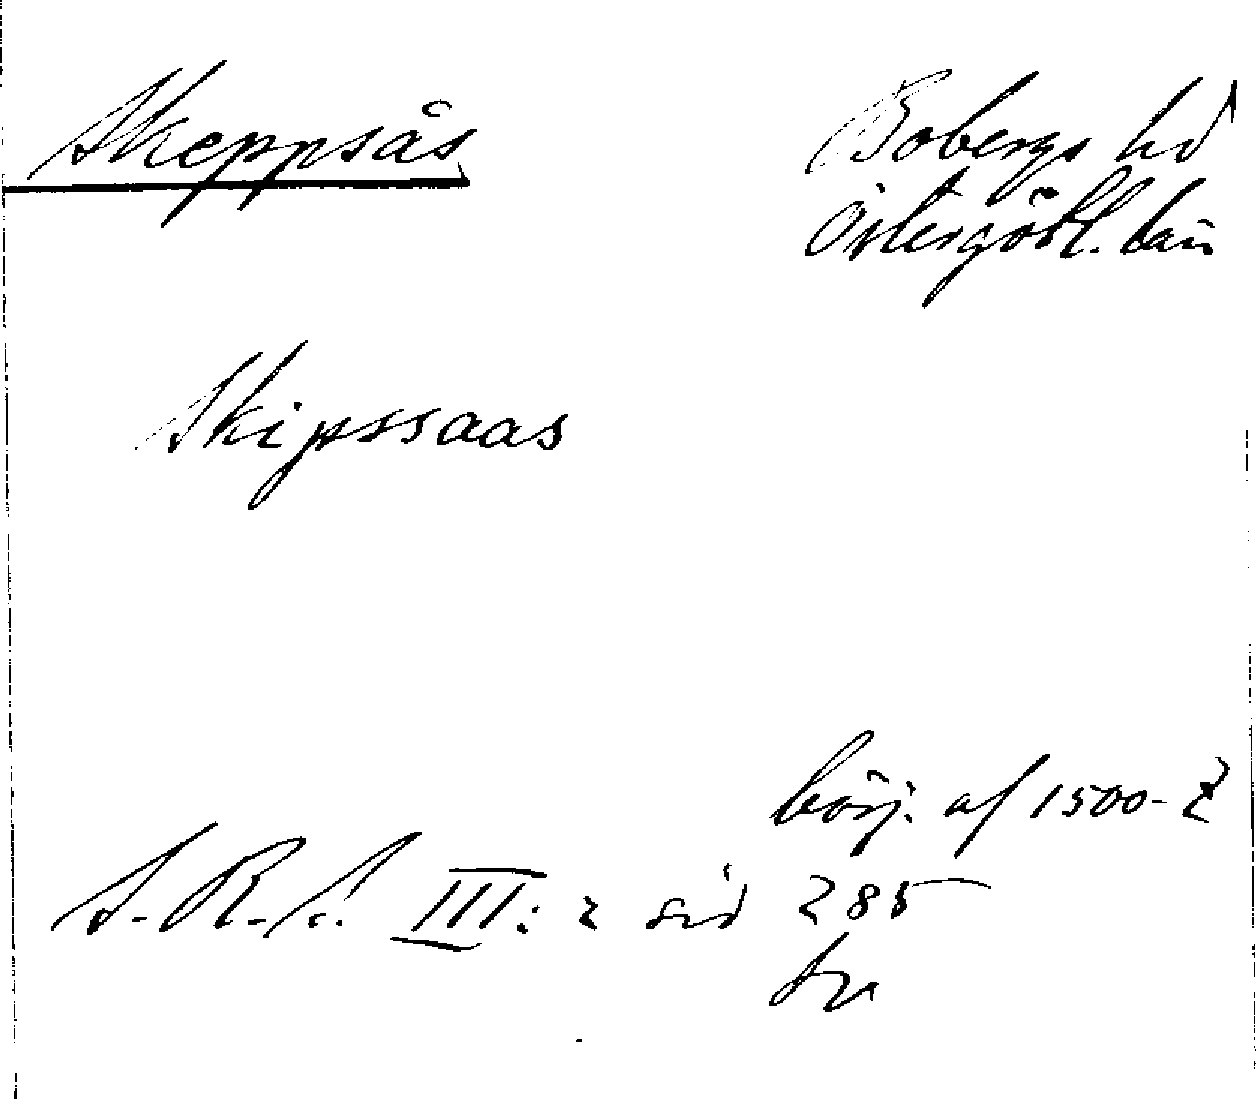 Skeppsås
Bobergs hd
Östergötl. län
Skipssaas
börj. af 1500-t
S. R. S. III: 2 sid 285